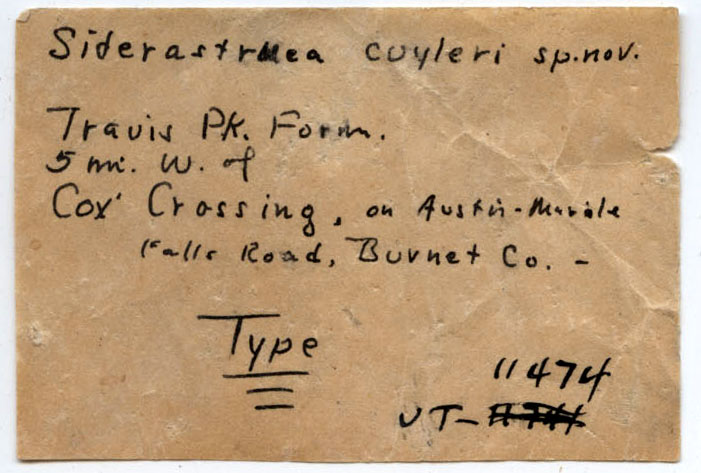 Siderastraea cuyleri sp.nov.
Travis Pk. Form.
5 mi. W. of
Cox' Crossing, on Austin-Marble
Falls Road, Burnet Co. -
Type
11474
UT-